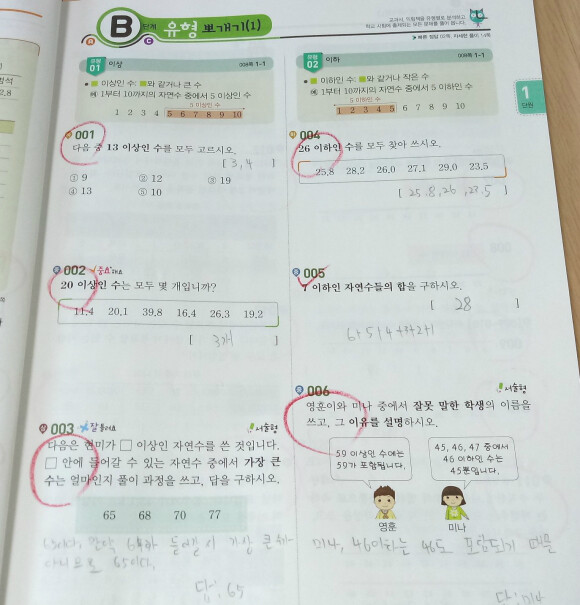 B 단계 유형 뽀개기(1)
A C
교과서, 익힘책을 유형별로 분석하고
학교 시험에 출제되는 모든 문제를 풀어 봅니다.
유형 01 이상 008쪽 1-1
이상인 수: 와 같거나 큰 수
예 1부터 10까지의 자연수 중에서 5 이상인 수
5 이상인 수
1 2 3 4 5 6 7 8 9 10
001
다음 중 13 이상인 수를 모두 고르시오.
[ 3, 4 ]
① 9 ② 12 ③ 19
④ 13 ⑤ 10
002 중요해요
20 이상인 수는 모두 몇 개입니까?
11.4 20.1 39.8 16.4 26.3 19.2
[ 3개 ]
003 잘 틀려요 서술형
다음은 현미가 □ 이상인 자연수를 쓴 것입니다.
□ 안에 들어갈 수 있는 자연수 중에서 가장 큰
수는 얼마인지 풀이 과정을 쓰고, 답을 구하시오.
65 68 70 77
가장 큰 수가
65이다.
답: 65
유형 02 이하 008쪽 1-1
이하인 수: 와 같거나 작은 수
예 1부터 10까지의 자연수 중에서 5 이하인 수
5 이하인 수
1 2 3 4 5 6 7 8 9 10
1
단원
004
26 이하인 수를 모두 찾아 쓰시오.
25.8 28.2 26.0 27.1 29.0 23.5
[ 25.8, 26, 23.5 ]
005
7 이하인 자연수들의 합을 구하시오.
[ 28 ]
006 서술형
영훈이와 미나 중에서 잘못 말한 학생의 이름을
쓰고, 그 이유를 설명하시오.
59 이상인 수에는
59가 포함됩니다.
45, 46, 47 중에서
46 이하인 수는
45뿐입니다.
영훈 미나
미나, 46이하는 46도 포함되기 때문
답: 미나